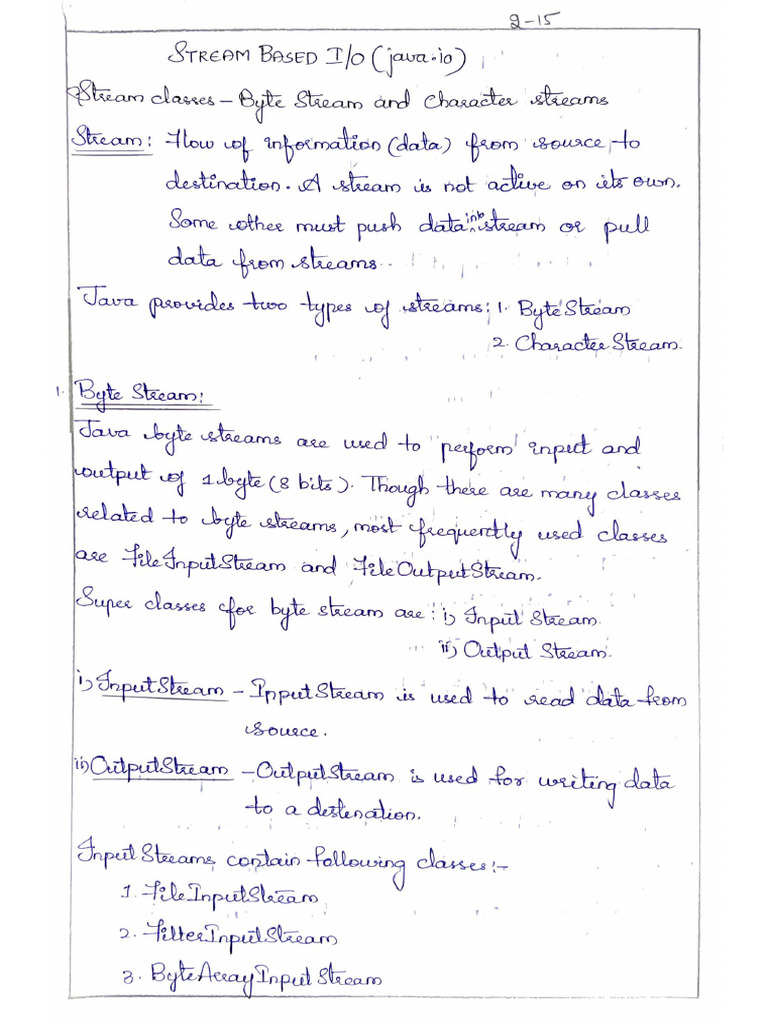 2-15
STREAM BASED I/O (java.io)
Stream classes - Byte Stream and Character streams
Stream: Flow of information (data) from source to
destination. A stream is not active on its own.
Some other must push data into stream or pull
data from streams.
Java provides two types of streams: 1. Byte Stream
2. Character Stream.
1. Byte Stream:
Java byte streams are used to perform input and
output of 1 byte (8 bits). Though there are many classes
related to byte streams, most frequently used classes
are FileInputStream and FileOutputStream.
Super classes for byte stream are: i) Input Stream.
ii) Output Stream.
i) InputStream - InputStream is used to read data from
source.
ii) OutputStream - OutputStream is used for writing data
to a destenation.
InputStreams contain following classes:-
1. FileInputStream
2. FilterInputStream
3. ByteArrayInputStream